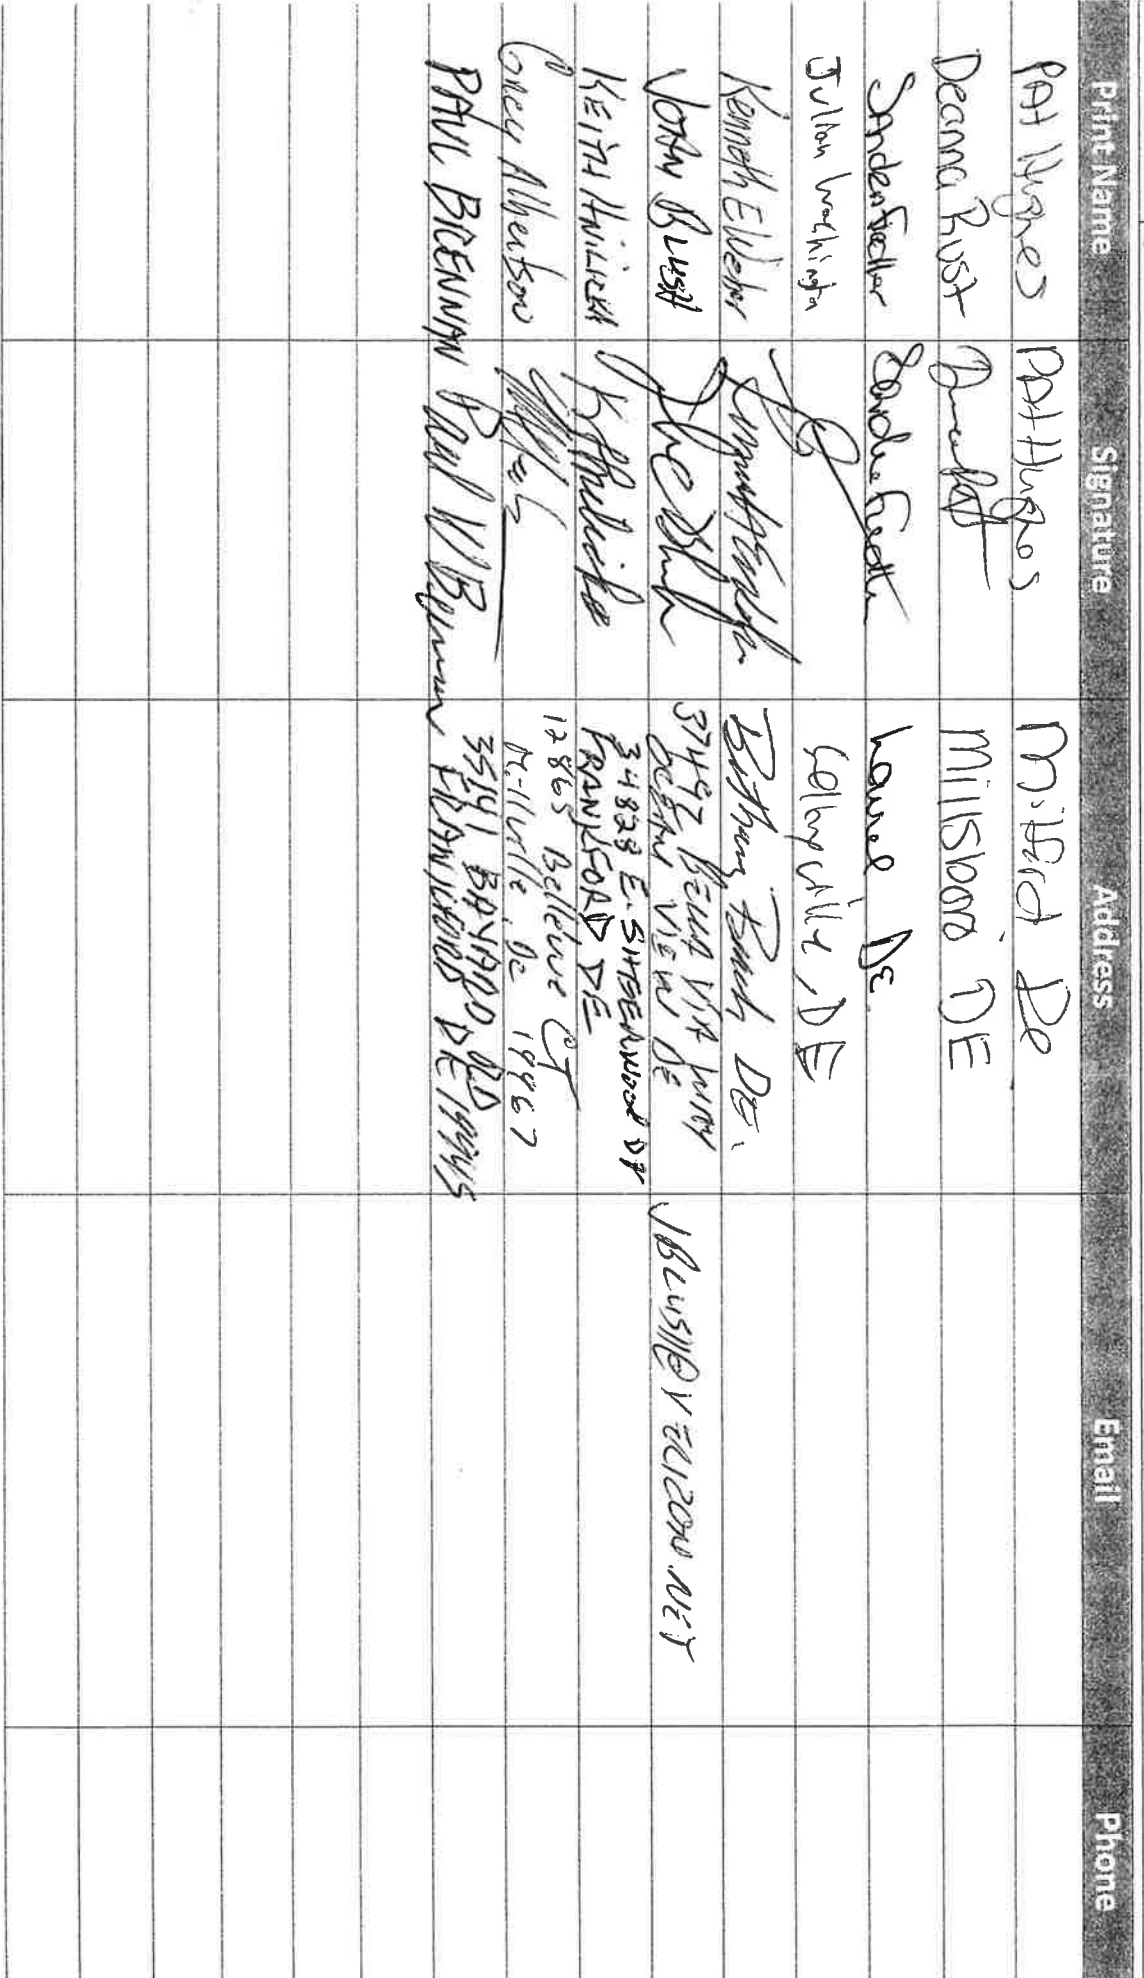 Print Name Signature Address Email Phone
PAt Hughes PAt Hughes Milford De
Deanna Rust Millsboro DE
Sandra Fiedler Laurel DE
Julian Washington Selbyville, DE
Kenneth E Weber Bethany Beach DE.
JOHN BLUSH 37497 BELLA VIA WAY
OCEAN VIEW DE JBLUSH@VERIZON.NET
KEITH HNILICKA 34828 E. SHEERWOOD DR
FRANKFORD DE
Greg Albertson 17865 Bellevue CT
Millville, De 19967
PAUL BRENNAN Paul W Brennan 35141 BAYARD RD
FRANKFORD DE 19945